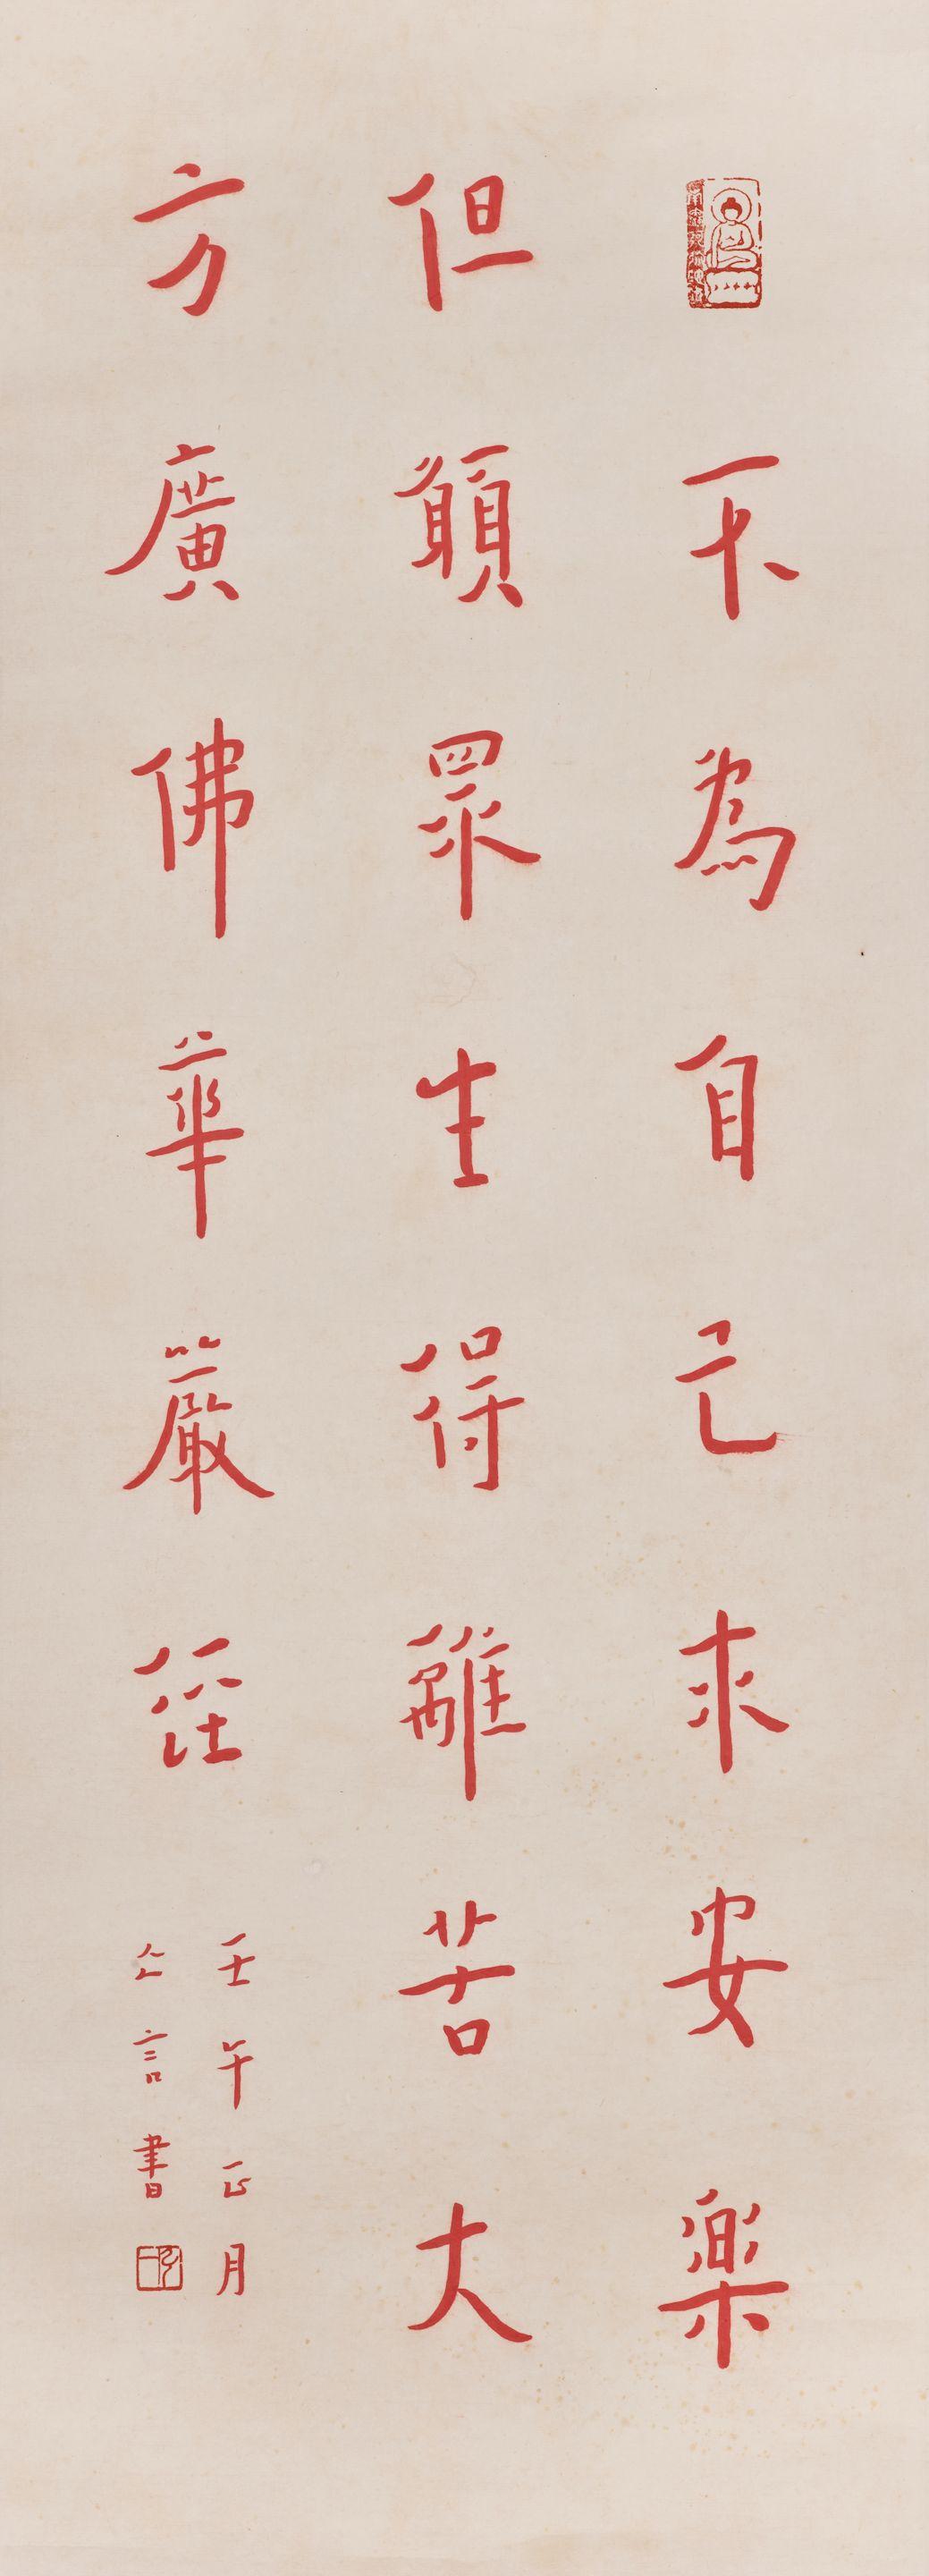 不為自己求安樂
但願眾生得離苦大
方廣佛華嚴經
壬午正月
亡言書